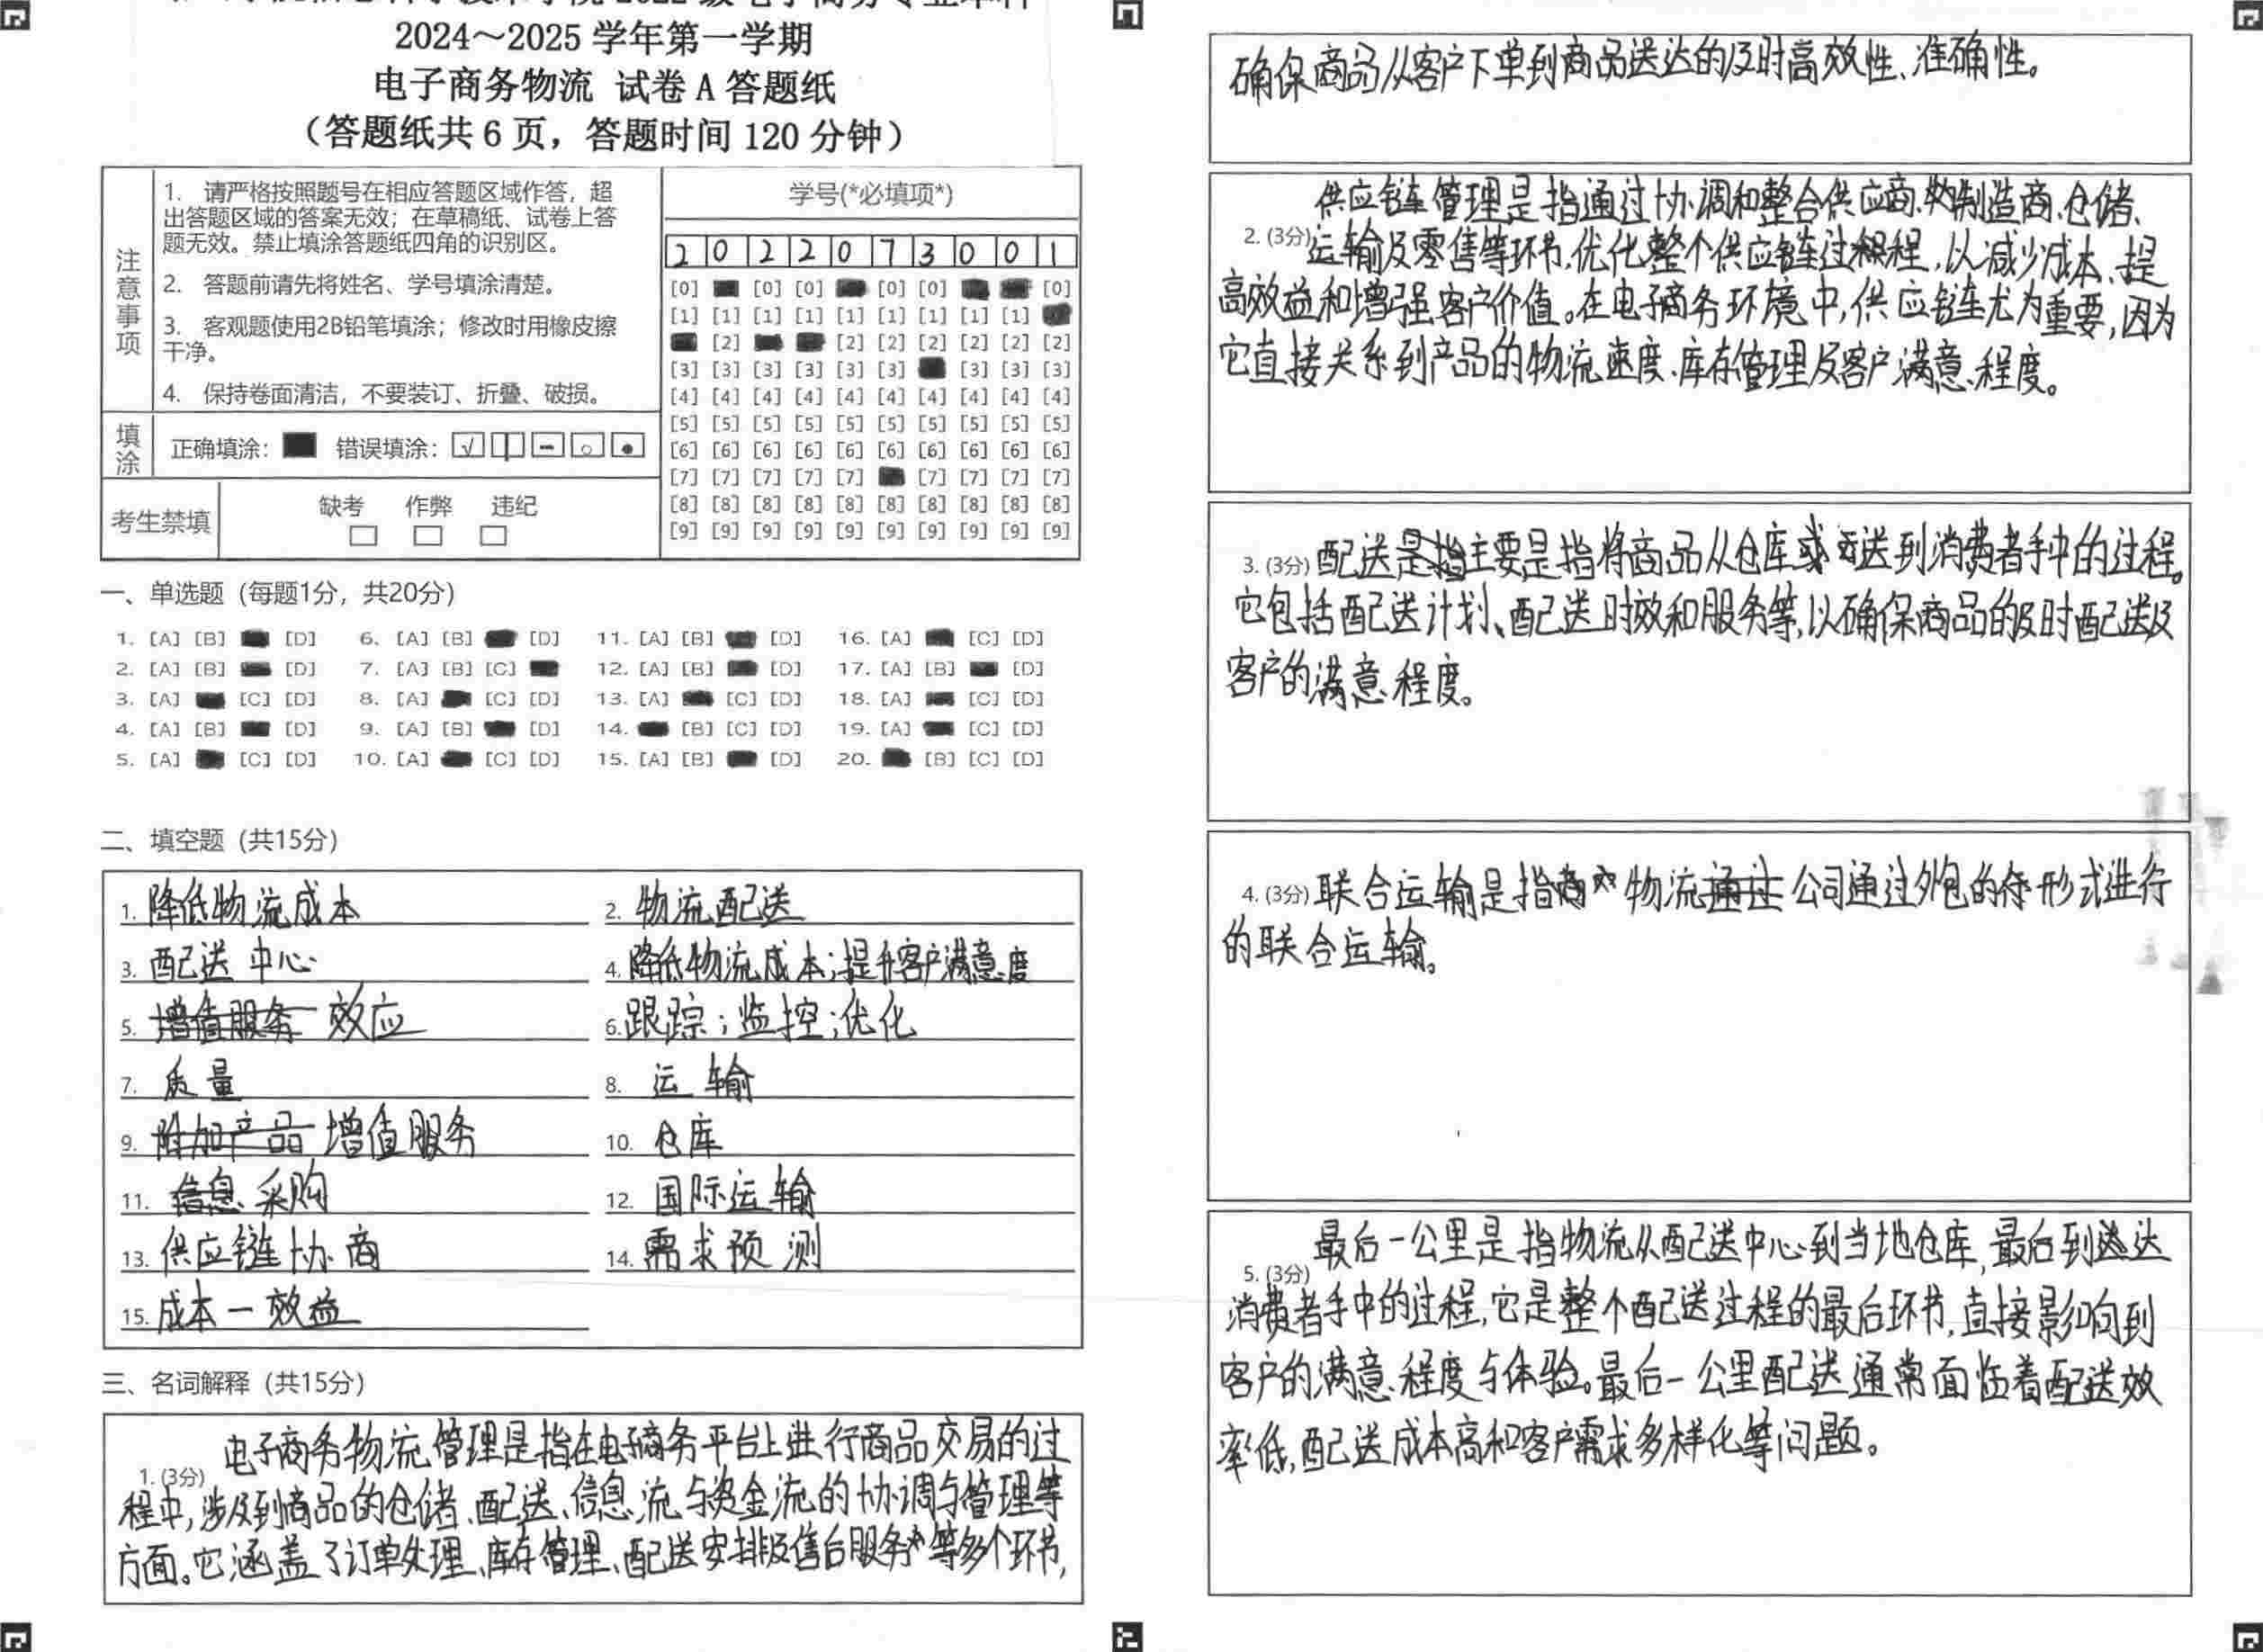 2024～2025 学年第一学期
电子商务物流 试卷 A 答题纸
（答题纸共 6 页，答题时间 120 分钟）
注意事项
1. 请严格按照题号在相应答题区域作答，超
出答题区域的答案无效；在草稿纸、试卷上答
题无效。禁止填涂答题纸四角的识别区。
2. 答题前请先将姓名、学号填涂清楚。
3. 客观题使用2B铅笔填涂；修改时用橡皮擦
干净。
4. 保持卷面清洁，不要装订、折叠、破损。
填涂
正确填涂： 错误填涂：
考生禁填
缺考 作弊 违纪
学号(*必填项*)
2 0 2 2 0 7 3 0 0 1
[0] [0] [0] [0] [0] [0]
[1] [1] [1] [1] [1] [1] [1] [1] [1]
[2] [2] [2] [2] [2] [2] [2]
[3] [3] [3] [3] [3] [3] [3] [3] [3]
[4] [4] [4] [4] [4] [4] [4] [4] [4] [4]
[5] [5] [5] [5] [5] [5] [5] [5] [5] [5]
[6] [6] [6] [6] [6] [6] [6] [6] [6] [6]
[7] [7] [7] [7] [7] [7] [7] [7] [7]
[8] [8] [8] [8] [8] [8] [8] [8] [8] [8]
[9] [9] [9] [9] [9] [9] [9] [9] [9] [9]
一、单选题（每题1分，共20分）
1. [A] [B] [D] 6. [A] [B] [D] 11. [A] [B] [D] 16. [A] [C] [D]
2. [A] [B] [D] 7. [A] [B] [C] 12. [A] [B] [D] 17. [A] [B] [D]
3. [A] [C] [D] 8. [A] [C] [D] 13. [A] [C] [D] 18. [A] [C] [D]
4. [A] [B] [D] 9. [A] [B] [D] 14. [B] [C] [D] 19. [A] [C] [D]
5. [A] [C] [D] 10. [A] [C] [D] 15. [A] [B] [D] 20. [B] [C] [D]
二、填空题（共15分）
1. 降低物流成本 2. 物流配送
3. 配送中心 4. 降低物流成本；提升客户满意度
5. 增值服务 效应 6. 跟踪；监控；优化
7. 质量 8. 运输
9. 附加产品 增值服务 10. 仓库
11. 信息 采购 12. 国际运输
13. 供应链协商 14. 需求预测
15. 成本一效益
三、名词解释（共15分）
1. (3分) 电子商务物流管理是指在电子商务平台上进行商品交易的过
程中，涉及到商品的仓储、配送、信息流与资金流的协调与管理等
方面。它涵盖了订单处理、库存管理、配送安排及售后服务等多个环节，
确保商品从客户下单到商品送达的及时高效性、准确性。
供应链管理是指通过协调和整合供应商、制造商、仓储、
2. (3分) 运输及零售等环节，优化整个供应链过程，以减少成本、提
高效益和增强客户价值。在电子商务环境中，供应链尤为重要，因为
它直接关系到产品的物流速度、库存管理及客户满意程度。
3. (3分) 配送是指主要是指将商品从仓库或送到消费者手中的过程。
它包括配送计划、配送时效和服务等，以确保商品的及时配送及
客户的满意程度。
4. (3分) 联合运输是指商物流通过公司通过外包的形式进行
的联合运输。
最后一公里是指物流从配送中心到当地仓库，最后到送达
5. (3分)
消费者手中的过程，它是整个配送过程的最后环节，直接影响到
客户的满意程度与体验。最后一公里配送通常面临着配送效
率低，配送成本高和客户需求多样化等问题。